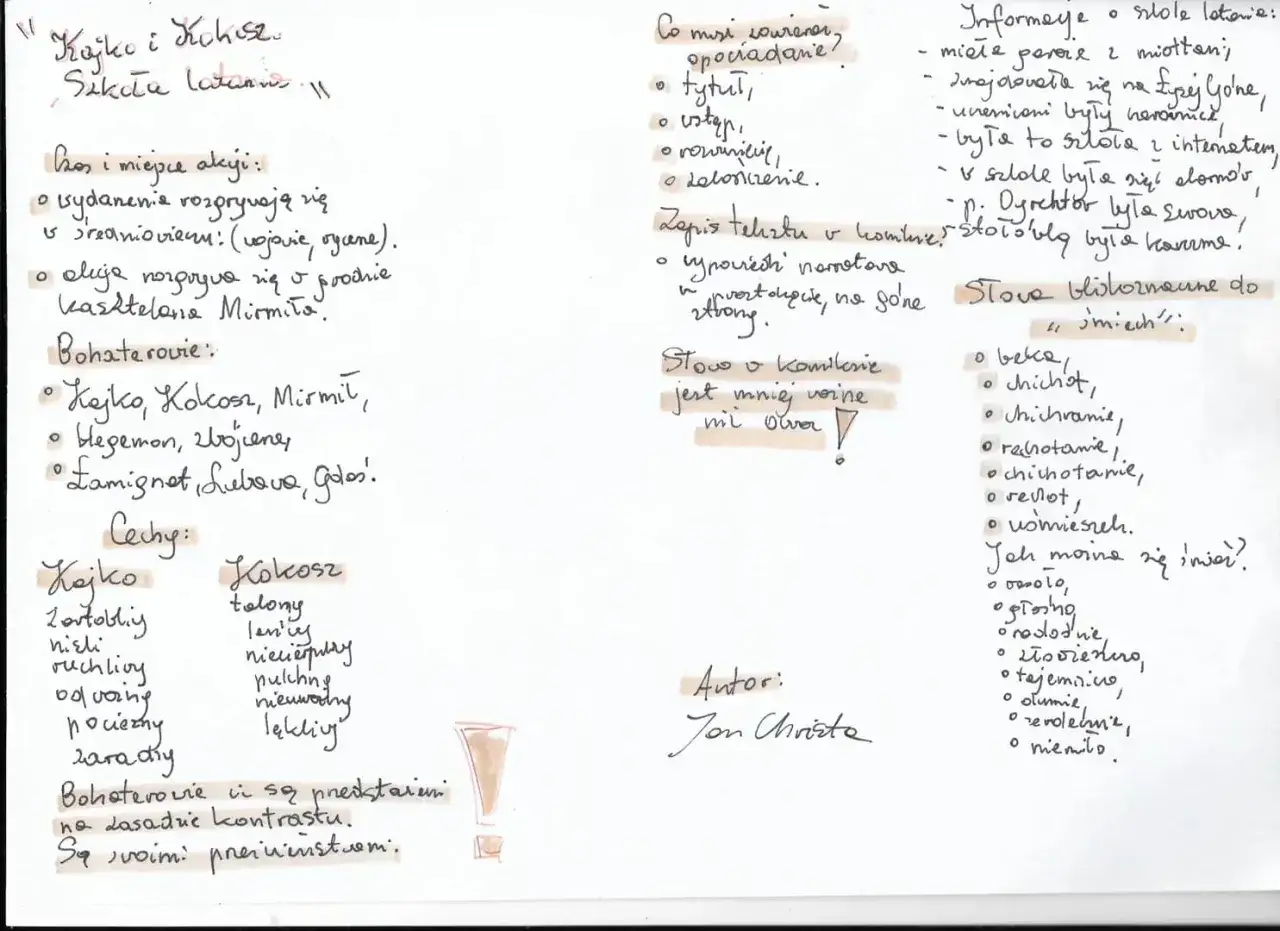 "Kajko i Kokosz.
Szkoła latania"
Czas i miejsce akcji:
wydarzenia rozgrywają się
w średniowieczu: (wojowie, rycerze).
akcja rozgrywa się w grodzie
kasztelana Mirmiła.
Bohaterowie:
Kajko, Kokosz, Mirmił,
Hegemon, zbójcerze,
Łamignat, Lubawa, Gdaś.
Cechy:
Kajko
żartobliwy
niski
ruchliwy
odważny
pocieszny
zaradny
Kokosz
leniwy
niecierpliwy
pulchny
nieuważny
lękliwy
Bohaterowie ci są przedstawieni
na zasadzie kontrastu.
Są swoimi przeciwieństwami.
Co musi zawierać
opowiadanie?
tytuł,
wstęp,
rozwinięcie,
zakończenie.
Zapis tekstu w komiksie:
wypowiedź narratora
w prostokącie, na górze
strony.
Słowo w komiksie
jest mniej ważne
niż obraz!
Autor:
Jan Christa
Informacje o szkole latania:
- miała garaże z miotłami,
- znajdowała się na Łysej Górze,
- uczennicami były czarownice,
- była to szkoła z internatem,
- w szkole była sieć domów,
- p. Dyrektor była surowa,
- stołówką była karczma.
Słowa bliskoznaczne do
"śmiech":
beka,
chichot,
chichranie,
rechotanie,
chichotanie,
rechot,
uśmieszek.
Jak można się śmiać?
wesoło,
głośno,
radośnie,
złowieszczo,
tajemniczo,
dumnie,
serdecznie,
niemiło.